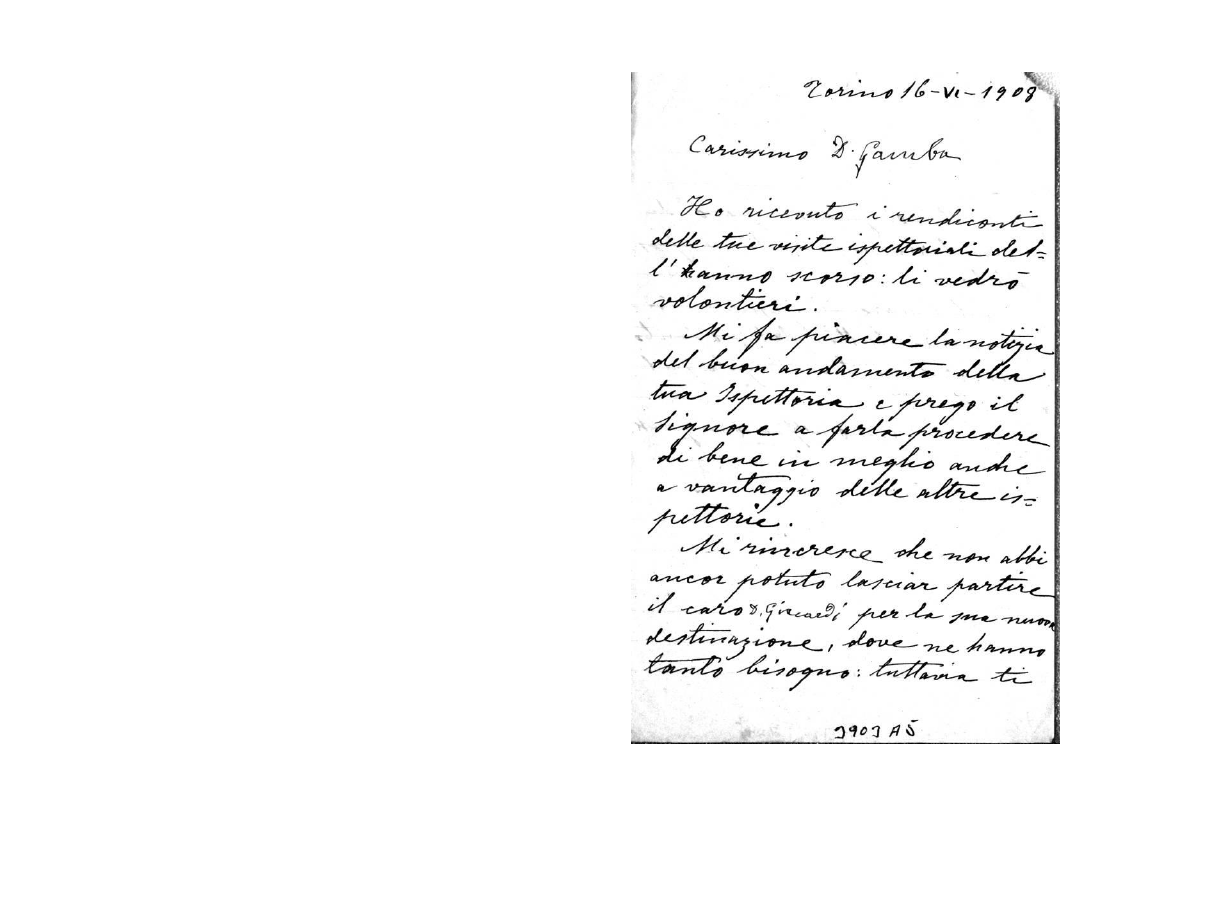 Torino 16-VI-1908
Carissimo D. Gamba
Ho ricevuto i rendiconti
delle tue visite ispettoriali del=
l'hanno scorso: li vedrò
volontieri.
Mi fa piacere la notizia
del buon andamento della
tua Ispettoria e prego il
Signore a farla procedere
di bene in meglio anche
a vantaggio delle altre is=
pettorie.
Mi rincresce che non abbi
ancor potuto lasciar partire
il caro D. per la sua nuova
destinazione, dove ne hanno
tanto bisogno: tuttavia ti
3903 A5